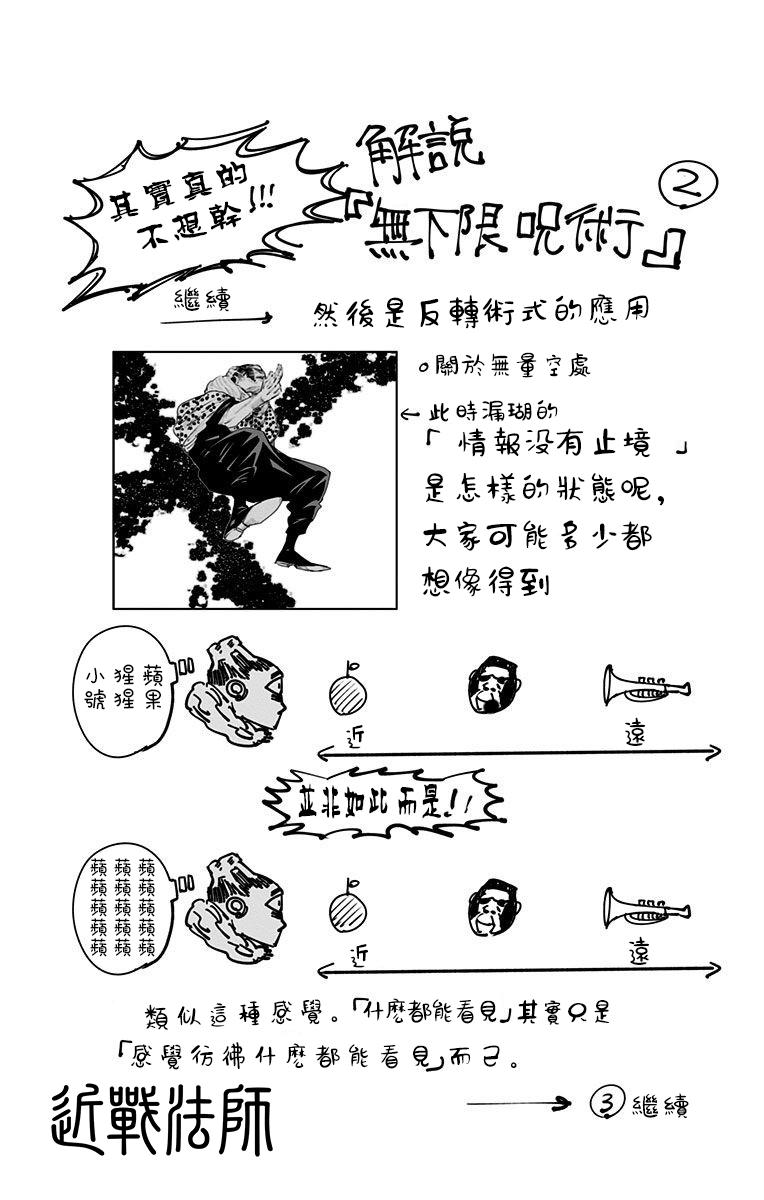 其實真的
不想幹!!!
解說
②
『無下限呪術』
繼續
然後是反轉術式的應用
。關於無量空處
←此時漏瑚的
「情報没有止境」
是怎樣的狀態呢,
大家可能多少都
想像得到
蘋果
猩猩
小號
近
遠
並非如此而是!!
蘋蘋蘋蘋蘋
蘋蘋蘋蘋蘋
蘋蘋蘋蘋蘋
近
遠
類似這種感覺。「什麽都能看見」其實只是
「感覺彷彿什麽都能看見」而已。
近戰法師
→③繼續